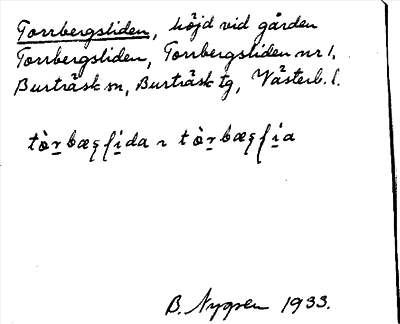 Torrbergsliden, höjd vid gården
Torrbergsliden, Torrbergsliden nr 1,
Burträsk sn, Burträsk tg, Västerb. l.
B. Nygren 1933.